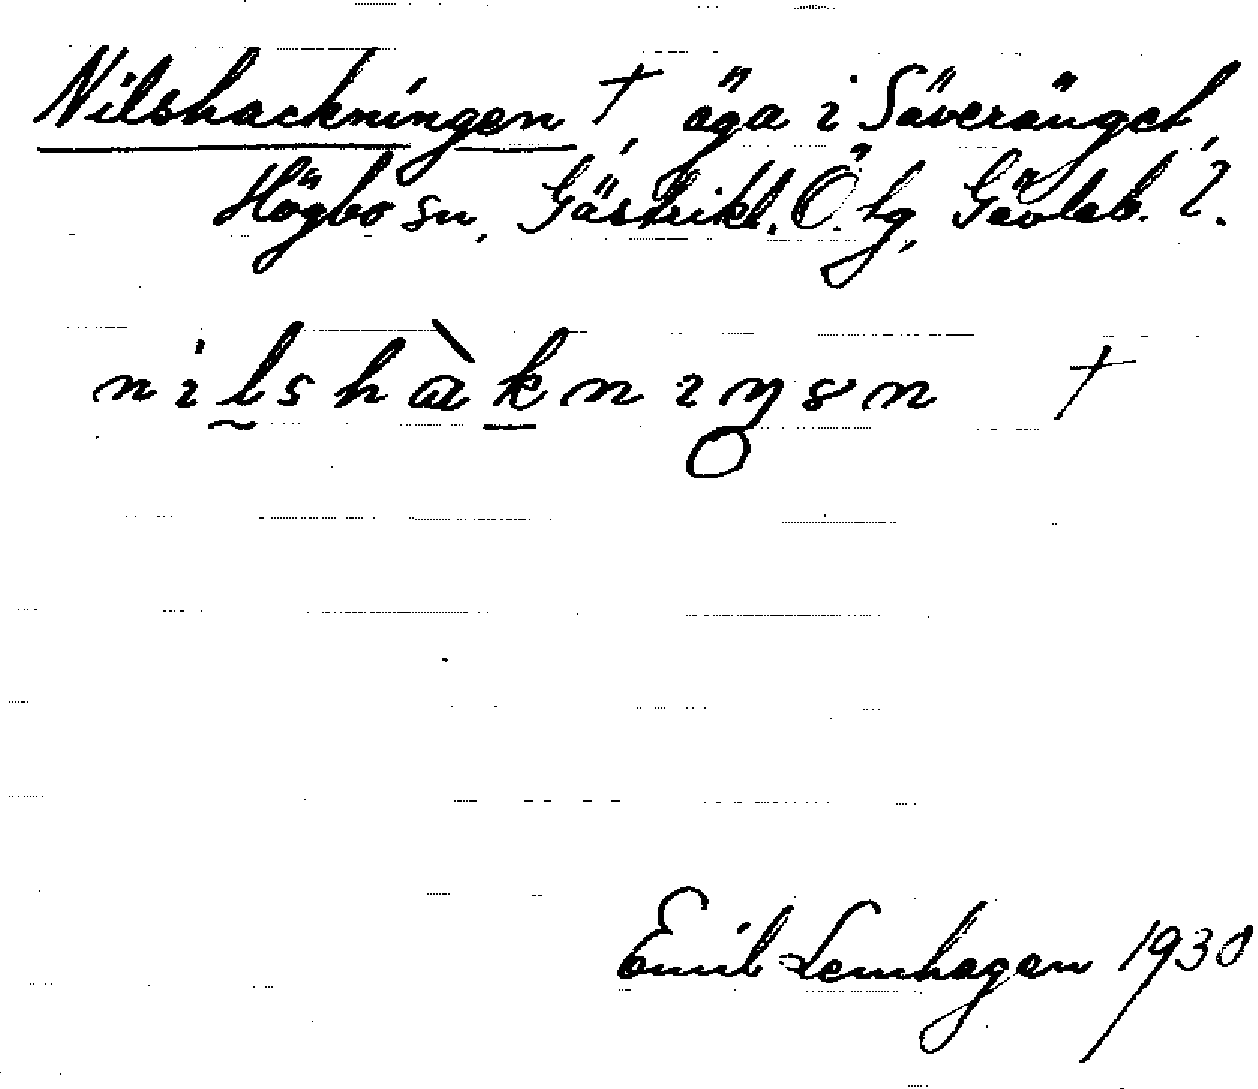 Nilshackningen †, äga i Säverängel,
Högbo sn, Gästrikl. Ö. hg, Gävleb. l.
nilshàkniŋən †
Emil Lennhagen 1930